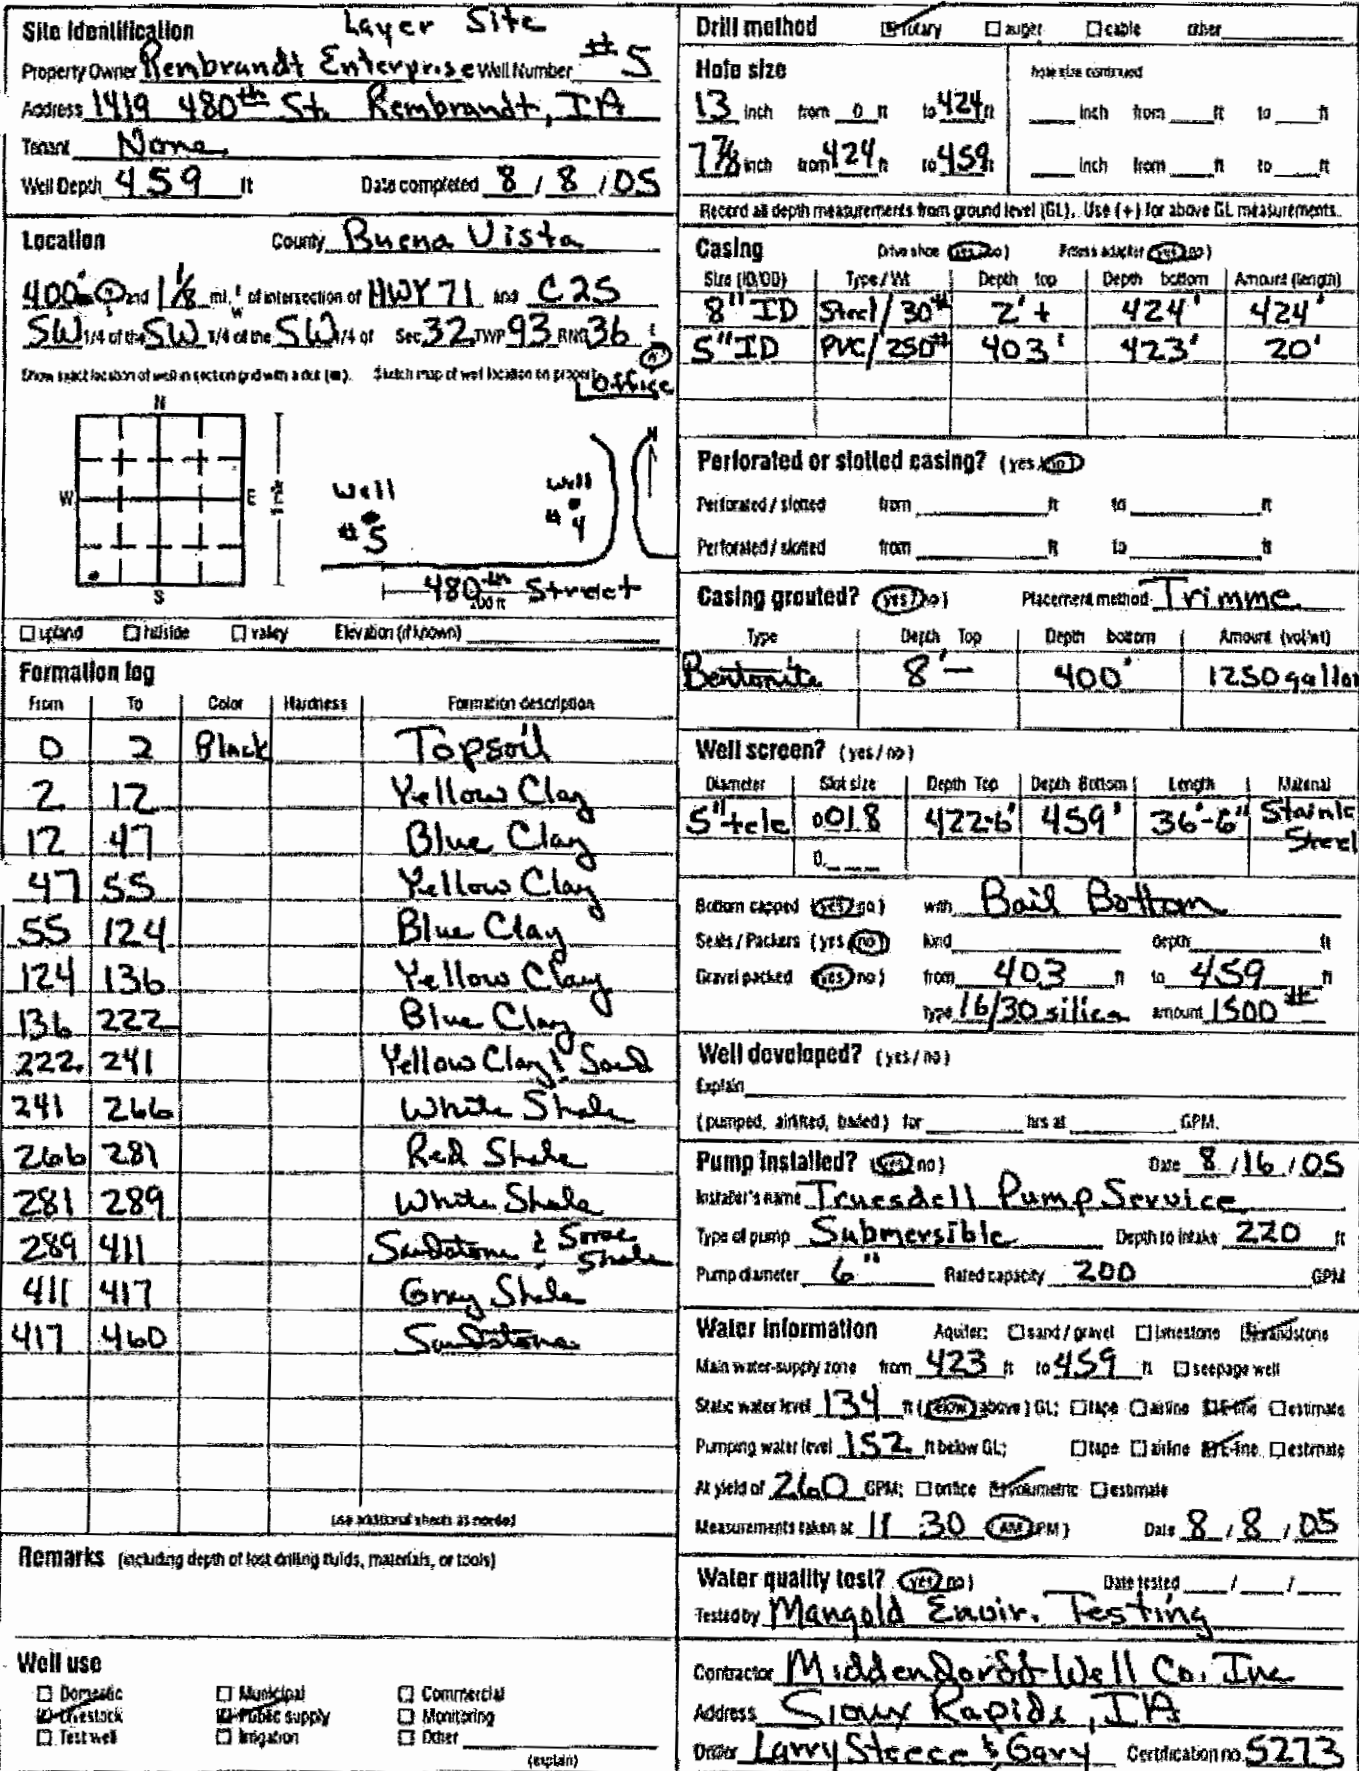 Layer Site
Site Identification
Property Owner Rembrandt Enterprise Well Number #5
Address 1419 480th St. Rembrandt, IA
Tenant None
Well Depth 459 ft Date completed 8 / 8 / 05
Location County Buena Vista
400' and 1 1/8 mi. W of intersection of HWY 71 and C25
SW 1/4 of the SW 1/4 of the SW 1/4 of Sec 32 TWP 93 RNG 36
Show exact location of well in section grid with a dot (■). Sketch map of well location on property.
Office
N
W E
S
1 mile
Well #5
Well #4
N
480th Street
200 ft
☐ upland ☐ hillside ☐ valley Elevation (if known)
Formation log
From To Color Hardness Formation description
0 2 Black Topsoil
2 12 Yellow Clay
12 47 Blue Clay
47 55 Yellow Clay
55 124 Blue Clay
124 136 Yellow Clay
136 222 Blue Clay
222 241 Yellow Clay & Sand
241 266 White Shale
266 281 Red Shale
281 289 White Shale
289 411 Sandstone & Some Shale
411 417 Gray Shale
417 460 Sandstone
(use additional sheets as needed)
Remarks (including depth of lost drilling fluids, materials, or tools)
Well use
☐ Domestic ☐ Municipal ☐ Commercial
☑ Livestock ☑ Public supply ☐ Monitoring
☐ Test well ☐ Irrigation ☐ Other
(explain)
Drill method ☑ rotary ☐ auger ☐ cable other
Hole size hole size continued
13 inch from 0 ft to 424 ft inch from ft to ft
7 7/8 inch from 424 ft to 459 ft inch from ft to ft
Record all depth measurements from ground level (GL). Use (+) for above GL measurements.
Casing Drive shoe (yes/no) Pitless adapter (yes/no)
Size (ID/OD) Type/Wt Depth top Depth bottom Amount (length)
8" ID Steel/30# 2'+ 424' 424'
5" ID PVC/250# 403' 423' 20'
Perforated or slotted casing? (yes/no)
Perforated / slotted from ft to ft
Perforated / slotted from ft to ft
Casing grouted? (yes/no) Placement method Trimme
Type Depth Top Depth bottom Amount (vol/wt)
Bentonite 8'- 400' 1250 gallon
Well screen? (yes/no)
Diameter Slot size Depth Top Depth Bottom Length Material
5" tele 0.018 422-6' 459' 36'-6" Stainle Steel
0.
Bottom capped (yes/no) with Bail Bottom
Seals / Packers (yes/no) kind depth ft
Gravel packed (yes/no) from 403 ft to 459 ft
Type 16/30 silica amount 1500#
Well developed? (yes/no)
Explain
(pumped, airlifted, bailed) for hrs at GPM.
Pump installed? (yes/no) Date 8/16/05
Installer's name Truesdell Pump Service
Type of pump Submersible Depth to intake 220 ft
Pump diameter 6" Rated capacity 200 GPM
Water information Aquifer: ☐ sand / gravel ☐ limestone ☑ sandstone
Main water-supply zone from 423 ft to 459 ft ☐ seepage well
Static water level 134 ft (below/above) GL; ☐ tape ☐ airline ☑ E-line ☐ estimate
Pumping water level 152 ft below GL; ☐ tape ☐ airline ☑ E-line ☐ estimate
At yield of 260 GPM; ☐ orifice ☑ volumetric ☐ estimate
Measurements taken at 11 30 (AM/PM) Date 8 / 8 / 05
Water quality test? (yes/no) Date tested / /
Tested by Mangold Envir. Testing
Contractor Middendorf Well Co. Inc
Address Sioux Rapids, IA
Driller Larry Steece & Gary Certification no. 5273